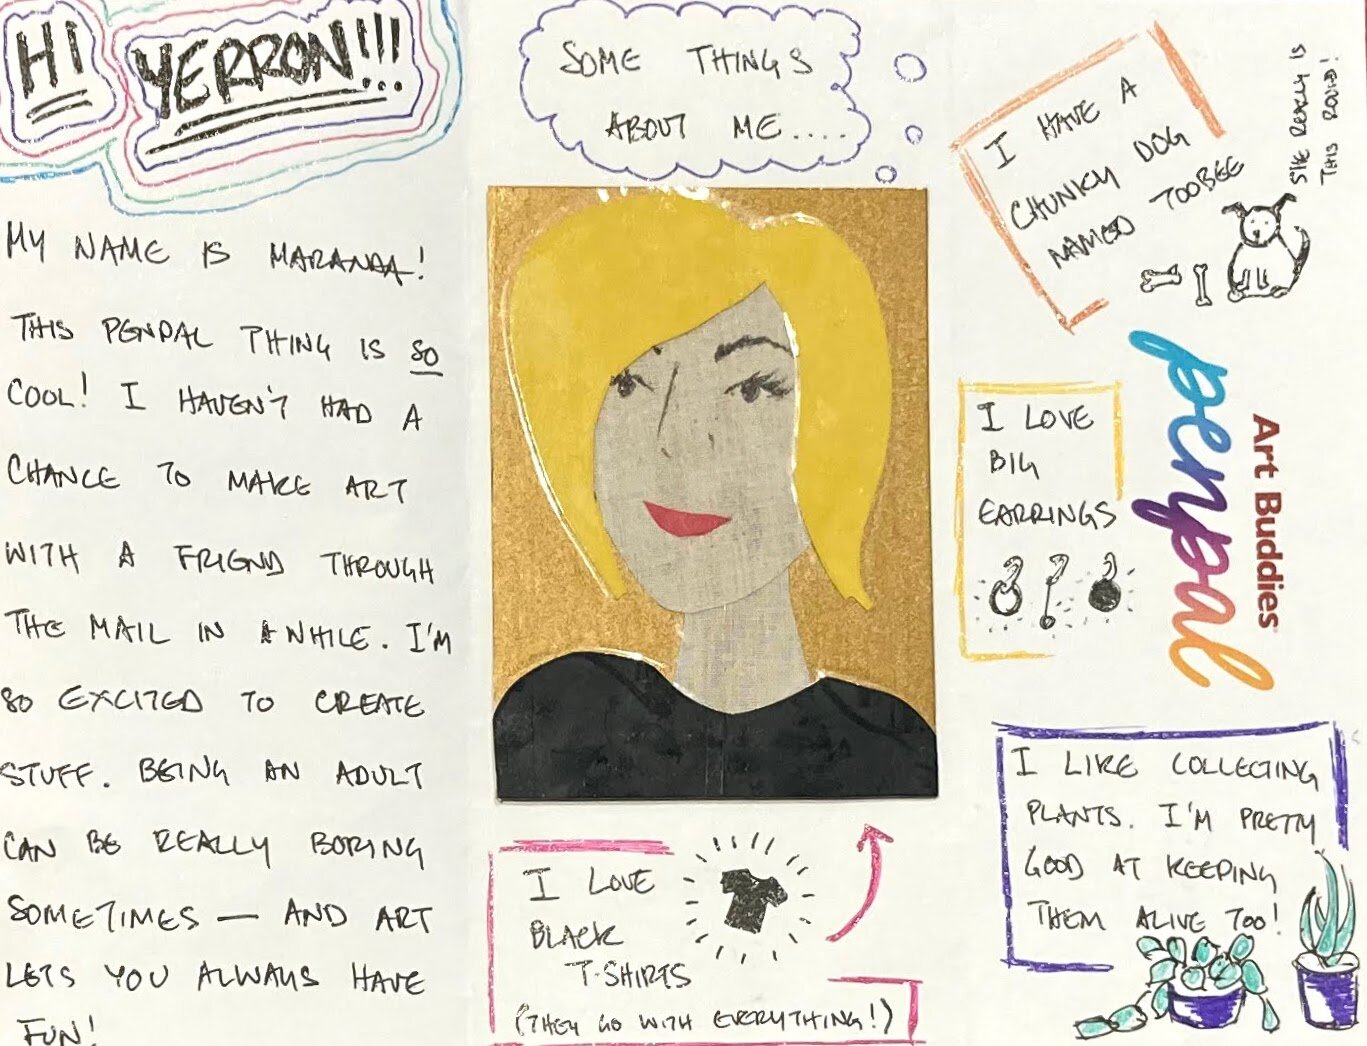 HI YERRON!!!
MY NAME IS MARANAA!
THIS PENPAL THING IS SO
COOL! I HAVEN'T HAD A
CHANCE TO MAKE ART
WITH A FRIEND THROUGH
THE MAIL IN AWHILE. I'M
SO EXCITED TO CREATE
STUFF. BEING AN ADULT
CAN BE REALLY BORING
SOMETIMES — AND ART
LETS YOU ALWAYS HAVE
FUN!
SOME THINGS
ABOUT ME....
I LOVE
BLACK
T-SHIRTS
(THEY GO WITH EVERYTHING!)
I HAVE A
CHUNKY DOG
NAMED TOOBEE
SHE REALLY IS
THIS ROUND!
I LOVE
BIG
EARRINGS
Art Buddies
penpal
I LIKE COLLECTING
PLANTS. I'M PRETTY
GOOD AT KEEPING
THEM ALIVE TOO!